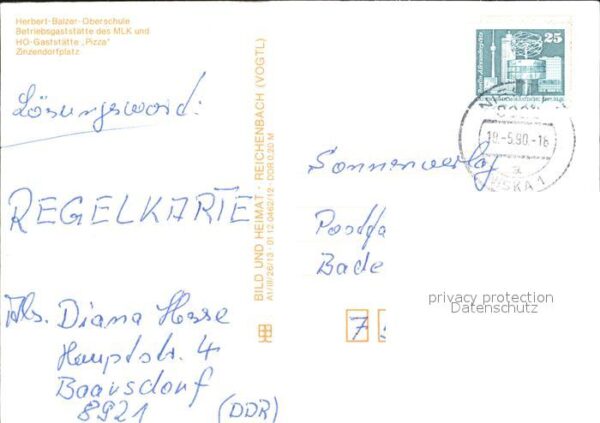 Herbert-Balzer-Oberschule
Betriebsgaststätte des MLK und
HO-Gaststätte „Pizza"
Zinzendorfplatz
Lösungswort:
REGELKARTE
Abs. Diana Hesse
Hauptstr. 4
Baarsdorf
8921 (DDR)
BILD UND HEIMAT · REICHENBACH (VOGTL)
A1/III/26/13 · 01 12 0462/12 · DDR 0,20 M
25
Berlin, Alexanderplatz
18.-5.90.-16
a
SKA 1
Sonnenverlag
Postfa
Bade
7
privacy protection
Datenschutz